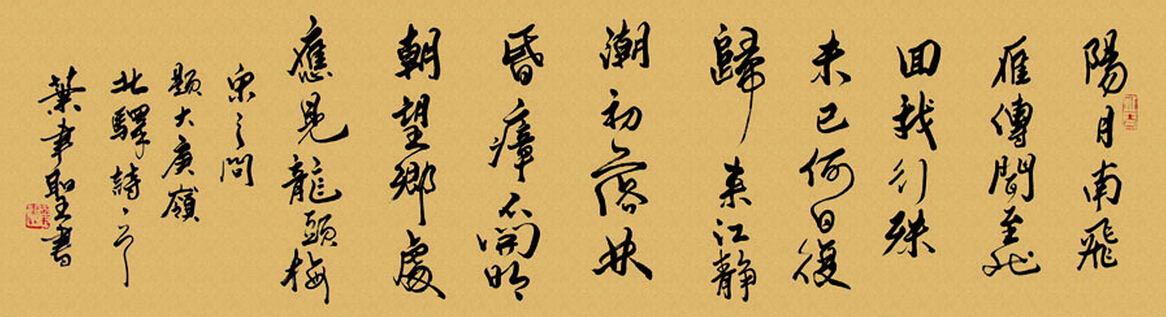 陽月南飛
雁傳聞至此
回我行殊
未已何日復
歸來江靜
潮初落林
昏瘴不開明
朝望鄉處
應見龍頭梅
宋之問
題大庾嶺
北驛詩一首
葉聿聖書